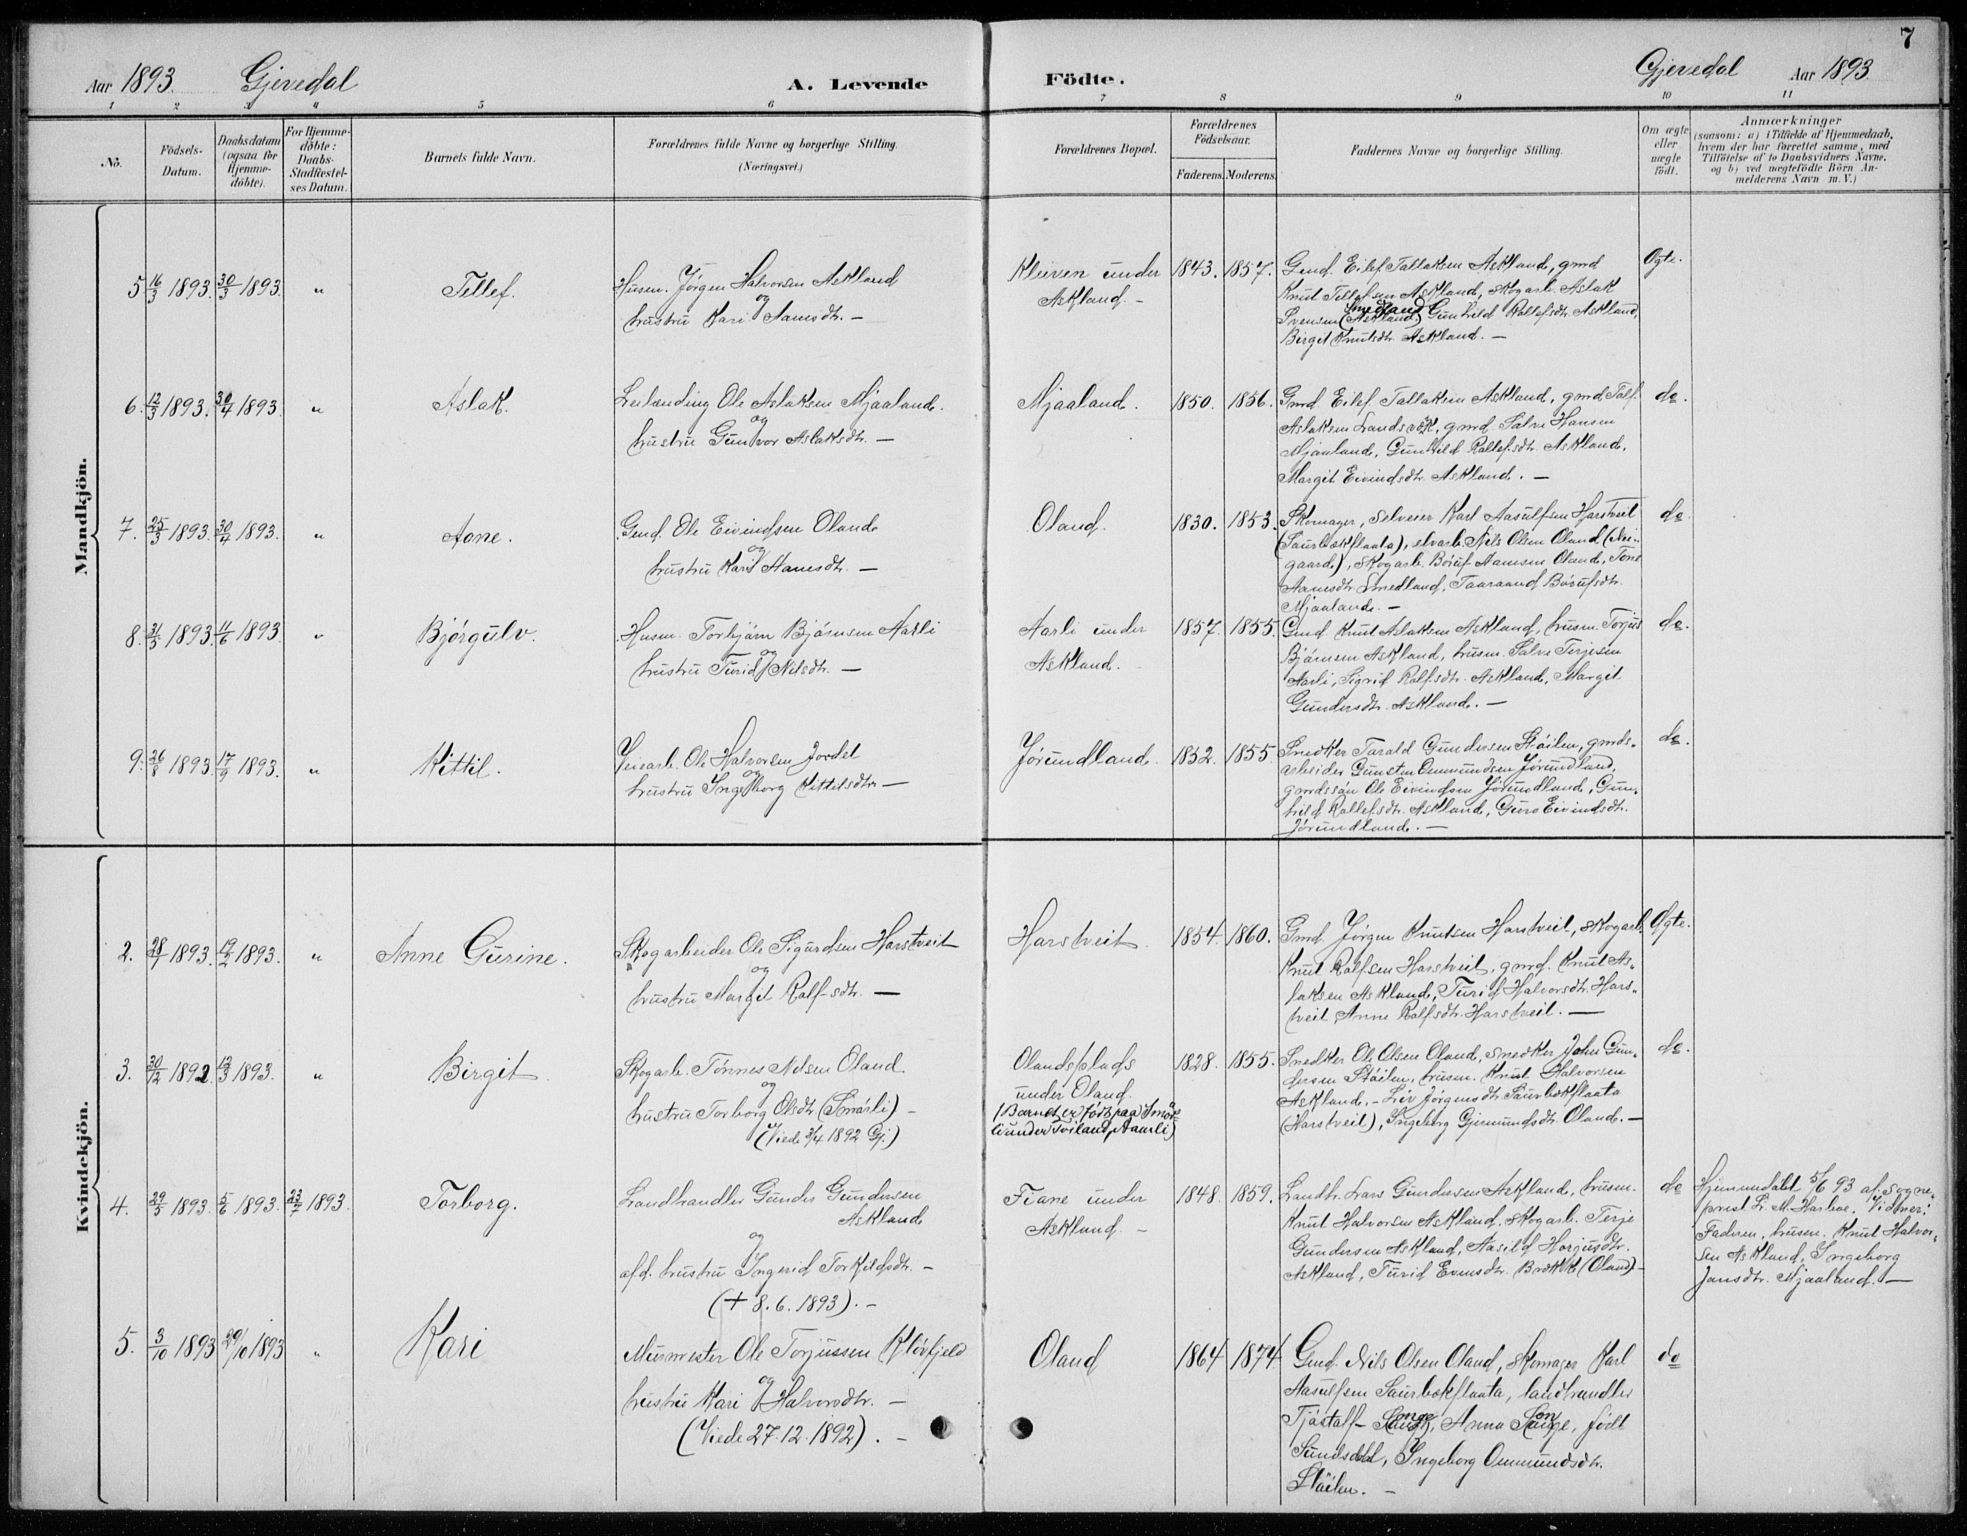 7
Aar 1893. Gjevedal A. Levende Födte. Gjevedal Aar 1893.
1 2 3 4 5 6 7 8 9 10 11
No.
Födsels-
Datum.
Daabsdatum
(ogsaa for
Hjemme-
döbte).
For Hjemme-
döbte:
Daabs-
Stadfæstel-
ses Datum.
Barnets fulde Navn.
Forældrenes fulde Navne og borgerlige Stilling.
(Næringsvei.)
Forældrenes Bopæl.
Forældrenes
Födselsaar.
Faderens. Moderens.
Faddernes Navne og borgerlige Stilling.
Om ægte
eller
uægte
födt.
Anmærkninger
(saasom: a) i Tilfælde af Hjemmedaab,
hvem der har forrettet samme, med
Tilföielse af to Daabsvidners Navne.
og b) ved uægtefödte Börn An-
melderens Navn m. V.)
Mandkjön.
5 16/3 1893. 30/3 1893. " Tellef.
Husm. Jørgen Halvorsen Askland
og
hustru Kari Aamsdtr. —
Kleiven under
Askland. —
1843. 1857.
Gmd. Eilef Tallaksen Askland, gmd
Knut Tellefsen Askland, skogarb. Aslak
Svensen (Askland) Smedland Gunhild Rollefsdtr. Askland,
Birgit Knutsdtr. Askland. —
Ægte.
6. 12/3 1893. 30/4 1893. " Aslak.
Leilænding Ole Aslaksen Mjaaland.
og
hustru Gunvor Aslaksdtr. —
Mjaaland.
1850. 1856.
Gmd. Eilef Tallaksen Askland, gmd Tall.
Aslaksen Landsvök, gmd Salve Hansen
Mjaaland, Gunhild Rollefsdtr. Askland,
Margit Eivindsdtr. Askland. —
do.
7. 25/3 1893. 30/4 1893. " Aane.
Gmd. Ole Eivindsen Oland
og
hustru Kari Aamsdtr. —
Oland.
1830. 1853.
Skomager, Selveier Karl Aasulfsen Harstveit
(Saurbækflaata), elvarb. Nils Olsen Oland
gaard), skogarb. Böruf Aamsen Oland, Tone
Aamsdtr. Smedland, Taaraand Börufsdtr.
Mjaaland. —
do
8. 31/5 1893. 11/6 1893. " Bjørgulv.
Husm. Torbjørn Bjørnsen Aarli
og
hustru Turid Nilsdtr. —
Aarli under
Askland.
1857. 1855.
Gmd. Knut Aslaksen Askland, husm. Torjus
Bjørnsen Askland, husm. Salve Terjesen
Aarli, Sigrid Rolfsdtr. Askland, Margit
Gundersdtr. Askland. —
do.
9. 26/8 1893. 17/9 1893. " Kittil.
Veiarb. Ole Halvorsen Jordet
og
hustru Ingeborg Kittilsdtr. —
Jørundland.
1852. 1855.
Snedker Tarald Gundersen Stöilen, gmds-
arbeider Gunsten Ommundsen Jørundland,
gmdssøn Ole Eivindsen Jørundland, Gun-
hild Rollefsdtr. Askland, Guro Eivindsdtr.
Jørundland. —
do.
Kvindekjön.
2. 28/1 1893. 19/2 1893. " Anne Gurine.
Skogarbeider Ole Sigurdsen Harstveit
og
hustru Margit Rolfsdtr. —
Harstveit.
1854. 1860.
Gmd. Jørgen Knutsen Harstveit, skogarb.
Knut Rolfsen Harstveit, gmd. Knut As-
laksen Askland, Turid Halvorsdtr. Hars-
tveit, Anne Rolfsdtr. Harstveit. —
Ægte.
3. 30/12 1892. 13/3 1893. " Birgit.
Skogarb. Tønnes Nilsen Oland
og
hustru Torborg Olsdtr (Smörli) —
(Viede 3/4 1892 Gj.)
Olandsplads
under Oland.
(Barnet er født paa Smör-
li under Tveiland, Aamli)
1828. 1855.
Snedker Ole Olsen Oland, snedker John Gun-
dersen Stöilen, husm. Knut Halvorsen
Askland, - Liv Jørgensdtr Saurbækflaata
(Harstveit), Ingeborg Gjermundsdtr. Oland. —
do.
4. 29/5 1893. 5/6 1893. 23/7 1893. Torborg.
Landhandler Gunder Gundersen
Askland
og
afd. hustru Ingerid Torkildsdtr. —
(+ 8. 6. 1893). —
Fiane under
Askland. —
1848. 1859.
Landh. Lars Gundersen Askland, husm.
Knut Halvorsen Askland, skogarb. Terje
Gundersen Askland, Aasild Horjusdtr.
Askland, Turid Evensdtr. Brekk (Oland) —
do
Hjemmedøbt 5/6 93 af sogne-
prest L. M. Harboe. Vidner:
Faderen, husm. Knut Halvor-
sen Askland, Ingeborg
Jansdtr. Mjaaland. —
5. 3/10 1893 29/10 1893 " Kari
Murmester Ole Torjussen Kløvfjeld
og
hustru Kari Halvorsdtr. —
(Viede 27. 12. 1892). —
Oland
1864 1874
Gmd. Nils Olsen Oland, skomager Karl
Aasulfsen Saurbækflaata, landhandler
Tjøstolf Songe, Anna Songe, født
Sundsdal, Ingeborg Ommundsdtr.
Stöilen. —
do